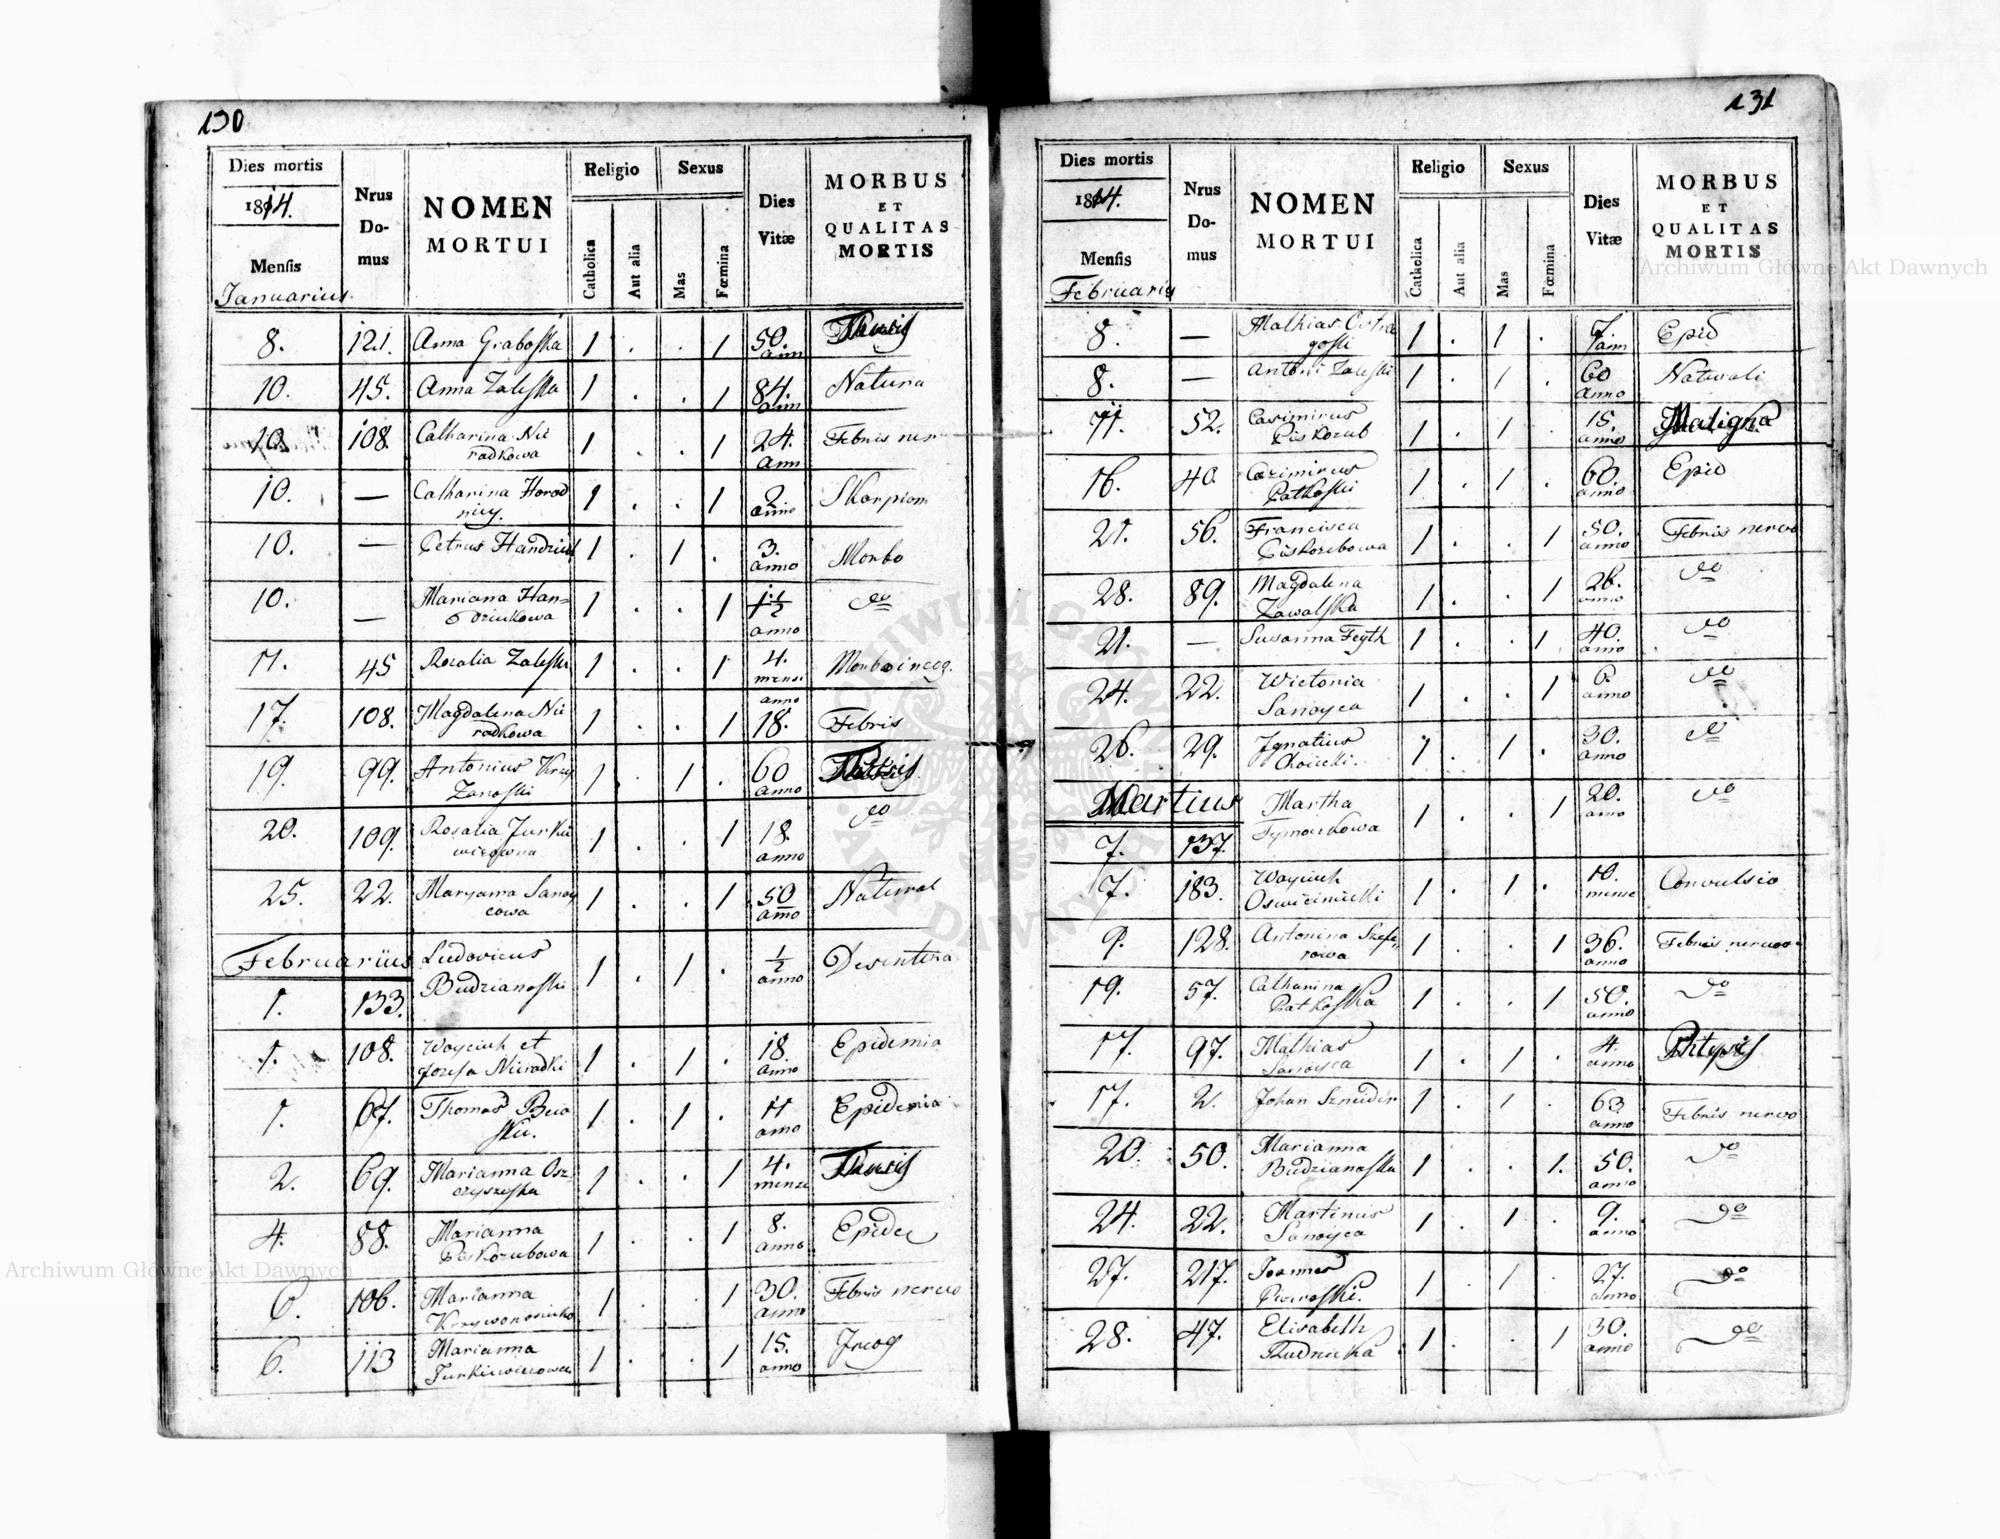 130
Dies mortis
1814.
Mensis
Januarius.
Nrus Do-mus
NOMEN MORTUI
Religio
Catholica
Aut alia
Sexus
Mas
Fœmina
Dies Vitæ
MORBUS ET QUALITAS MORTIS
8. 121. Anna Graboska 1 . . 1 50. ann
10. 45. Anna Zaleska 1 . . 1 84. ann Natura
10. 108. Catharina Nie radkowa 1 . . 1 24. ann Febris ner
10. — Catharina Horod nicy. 1 . . 1 2 anno Skorpion
10. — Petrus Handziuk 1 . 1 . 3. anno Morbo
10. — Mariana Han= dziukowa 1 . . 1 1½ anno do
11. 45 Rozalia Zaleska 1 . . 1 4. mensi Morbo incog.
17. 108. Magdalena Nie radkowa 1 . . 1 anno 18. Febris
19. 99. Antonius Krzy Zanoski 1 . 1 . 60 anno
20. 109. Rosalia Jurkie wiczowna 1 . . 1 18. anno do
25. 22. Maryanna Sanoy cowa 1 . . 1 50 anno Natural
Februariüs
1. 133. Ludovicus Budzianoski 1 . 1 . ½ anno Desinteria
1. 108. Woyciech et Jozefa Nieradki 1 . 1 . 18. anno Epidemia
1. 67. Thomas 1 . 1 . 11 anno Epidemia
2. 69. Marianna 1 . . 1 4. mense
4. 88. Marianna Piskozubowa 1 . . 1 8. anno Epide
6. 106. Marianna Krzywonosiuko 1 . . 1 30. anno Febris nervo
6. 113 Marianna Jurkiewiczowa 1 . . 1 15. anno Incog
131
Dies mortis
1814.
Mensis
Februarius
Nrus Do-mus
NOMEN MORTUI
Religio
Catholica
Aut alia
Sexus
Mas
Fœmina
Dies Vitæ
MORBUS ET QUALITAS MORTIS
8. — Mathias Ostro goski 1 . 1 . 7. ann Epid
8. — Antoni Zaleski 1 . 1 . 60 anno Naturali
11. 52. Casimirus Piskozub 1 . 1 . 15. anno Maligna
16. 40. Cazimirus Patkoski 1 . 1 . 60. anno Epid
21. 56. Francisca Piskozubowa 1 . . 1 50. anno Febris nervo
28. 89. Magdalena Zawalska 1 . . 1 26. anno do
21. — Susanna Feyth 1 . . 1 40. anno do
24. 22. Wictoria Sanoyca 1 . . 1 6 anno do
26. 29. Ignatius Choiecki 1 . 1 . 30. anno do
Martius
7. 137. Martha Tymczukowa 1 . . 1 20. anno do
7. 183. Woyciech Oswiecimicki 1 . 1 . 10. mense Convulsio
9. 128. Antonina Szefe, rowa 1 . . 1 36. anno Febris nervo
19. 57. Catharina Patkoska 1 . . 1 50. anno do
17. 97. Mathias Sanoyca 1 . 1 . 4. anno
17. 2. Johan Sznider 1 . 1 . 63. anno Febris nervo
20. 50. Marianna Budzianoska 1 . . 1. 50. anno do
24. 22. Martinus Sanoyca 1 . 1 . 9. anno do
27. 217. Joannes Piotroski. 1 . 1 . 27. anno do
28. 47. Elisabeth Rudnicka 1 . . 1 30. anno do
Archiwum Główne Akt Dawnych
Archiwum Główne Akt Dawnych
ARCHIWUM GŁÓWNE AKT DAWNYCH